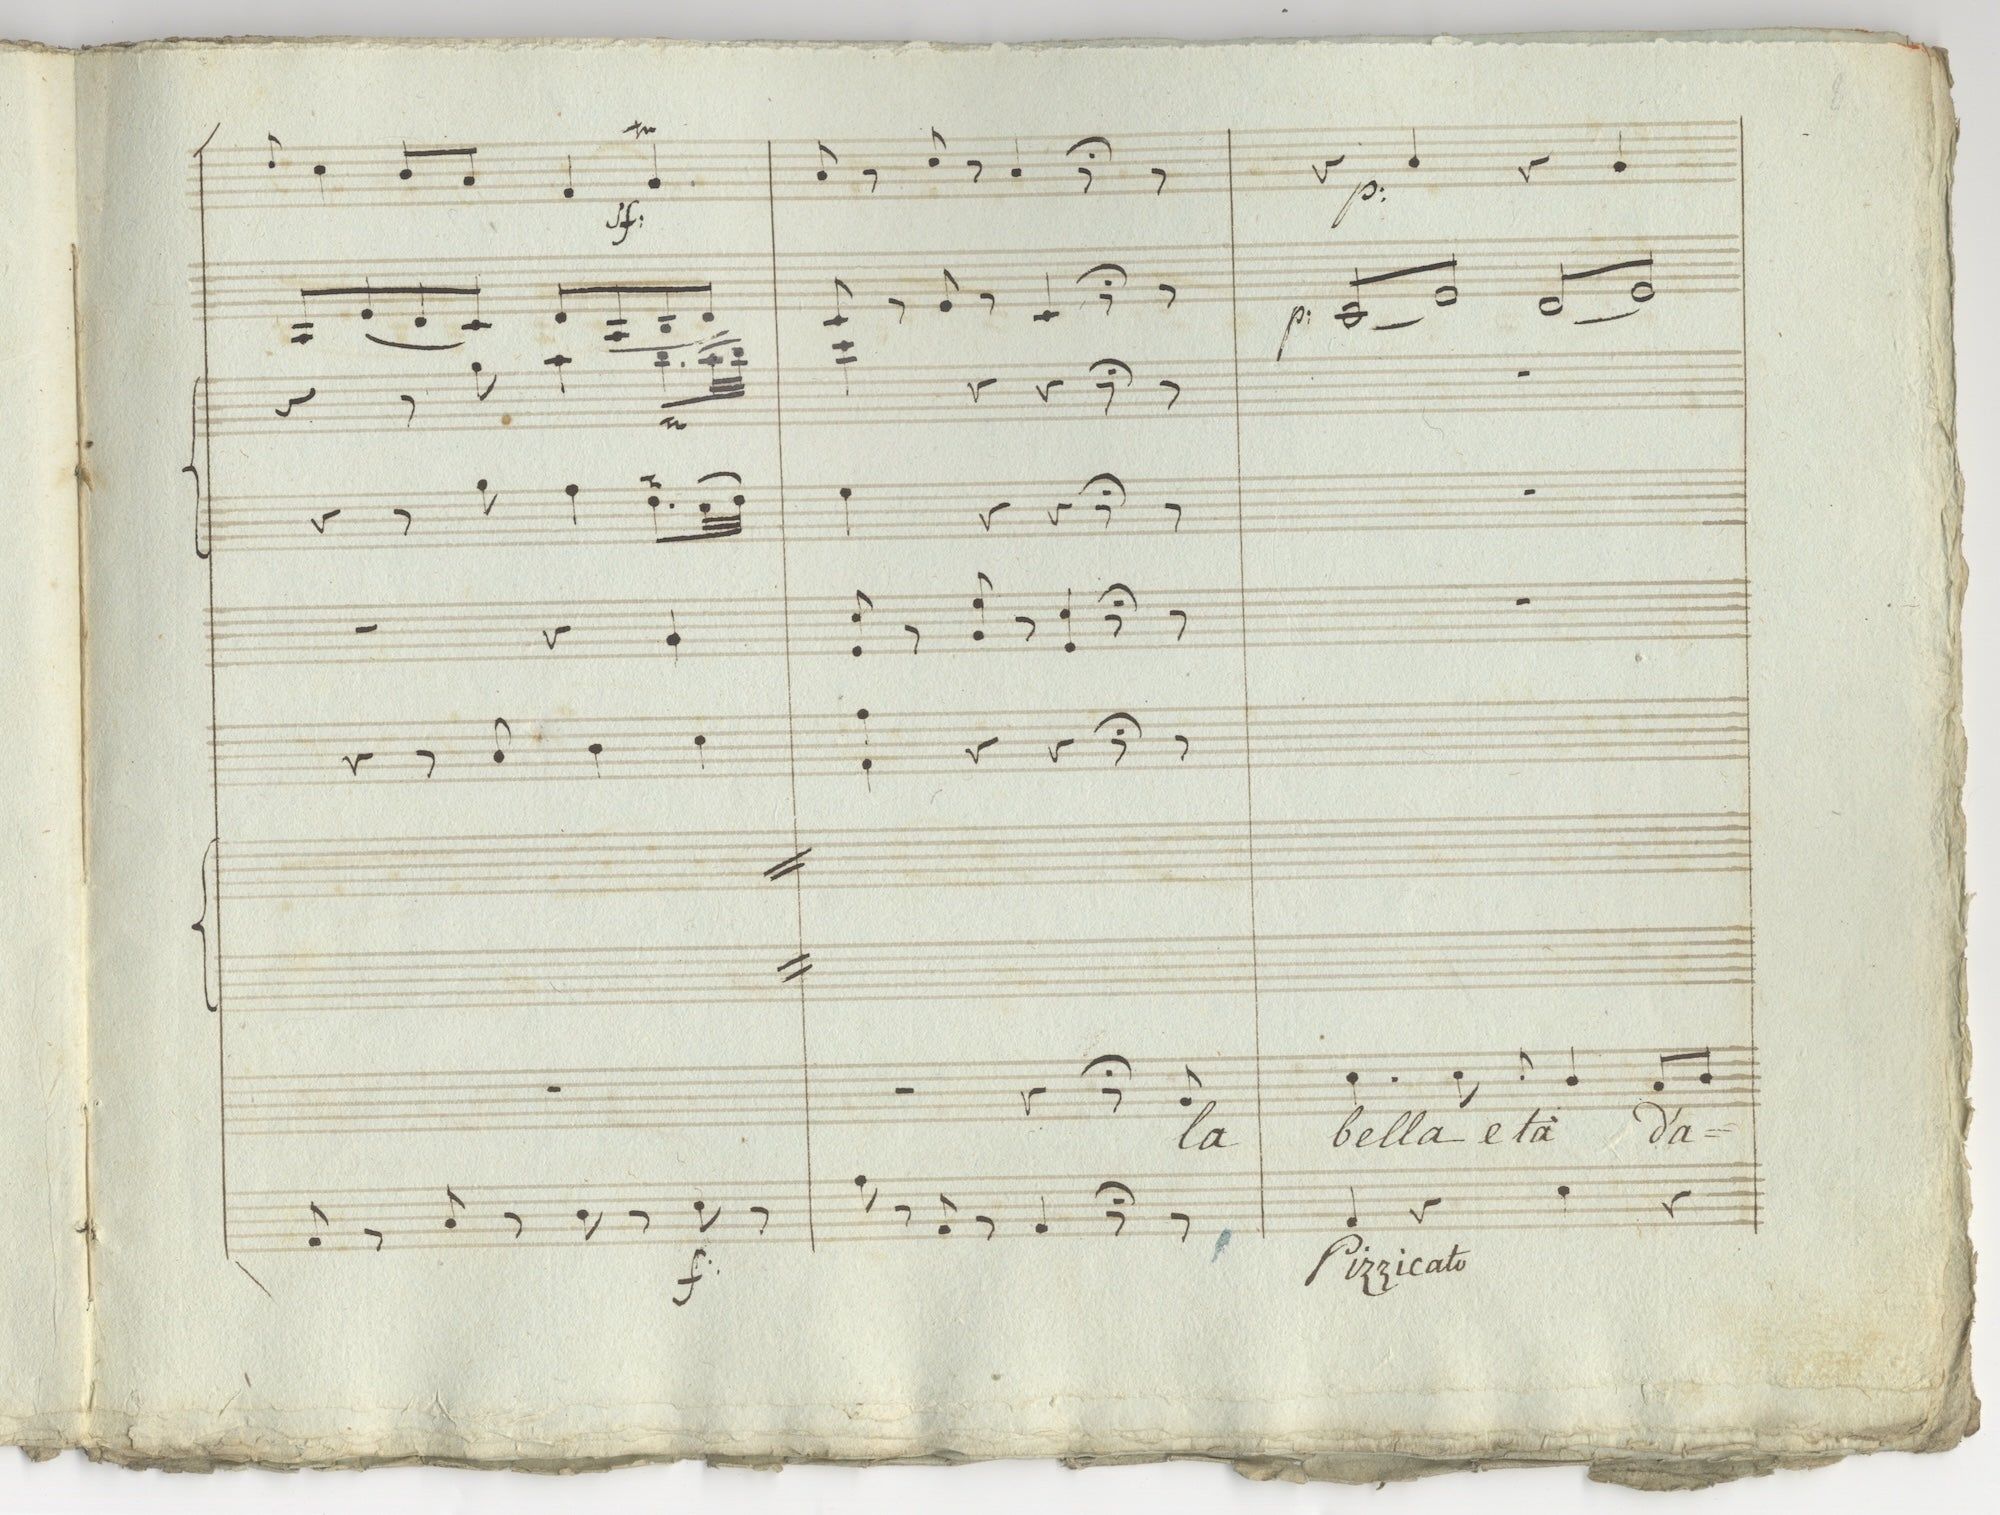 sf:
p:
p:
la bella età d'a=
f:
Pizzicato